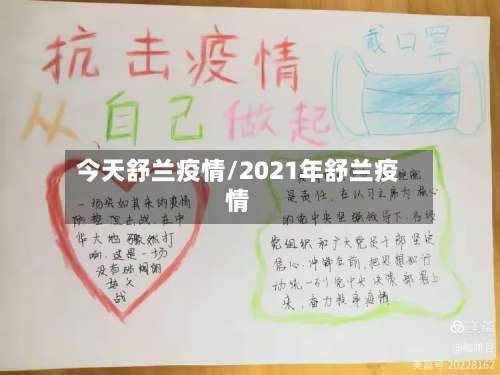 抗击疫情
从自己做起
戴口罩
今天舒兰疫情/2021年舒兰疫情
一场突如其来的疫情
防控阻击战,在中
华大地骤然打
响,这是一场
没有硝烟的
战
是责任,在以习主席为核心
的党中央坚强领导下,各级
党组织和广大党员干部坚定
信心,冲锋在前,把思想和行
动统一到党中央决策部署上
来,奋力抗争疫情
美篇
@咖啡豆
美篇号:20228162